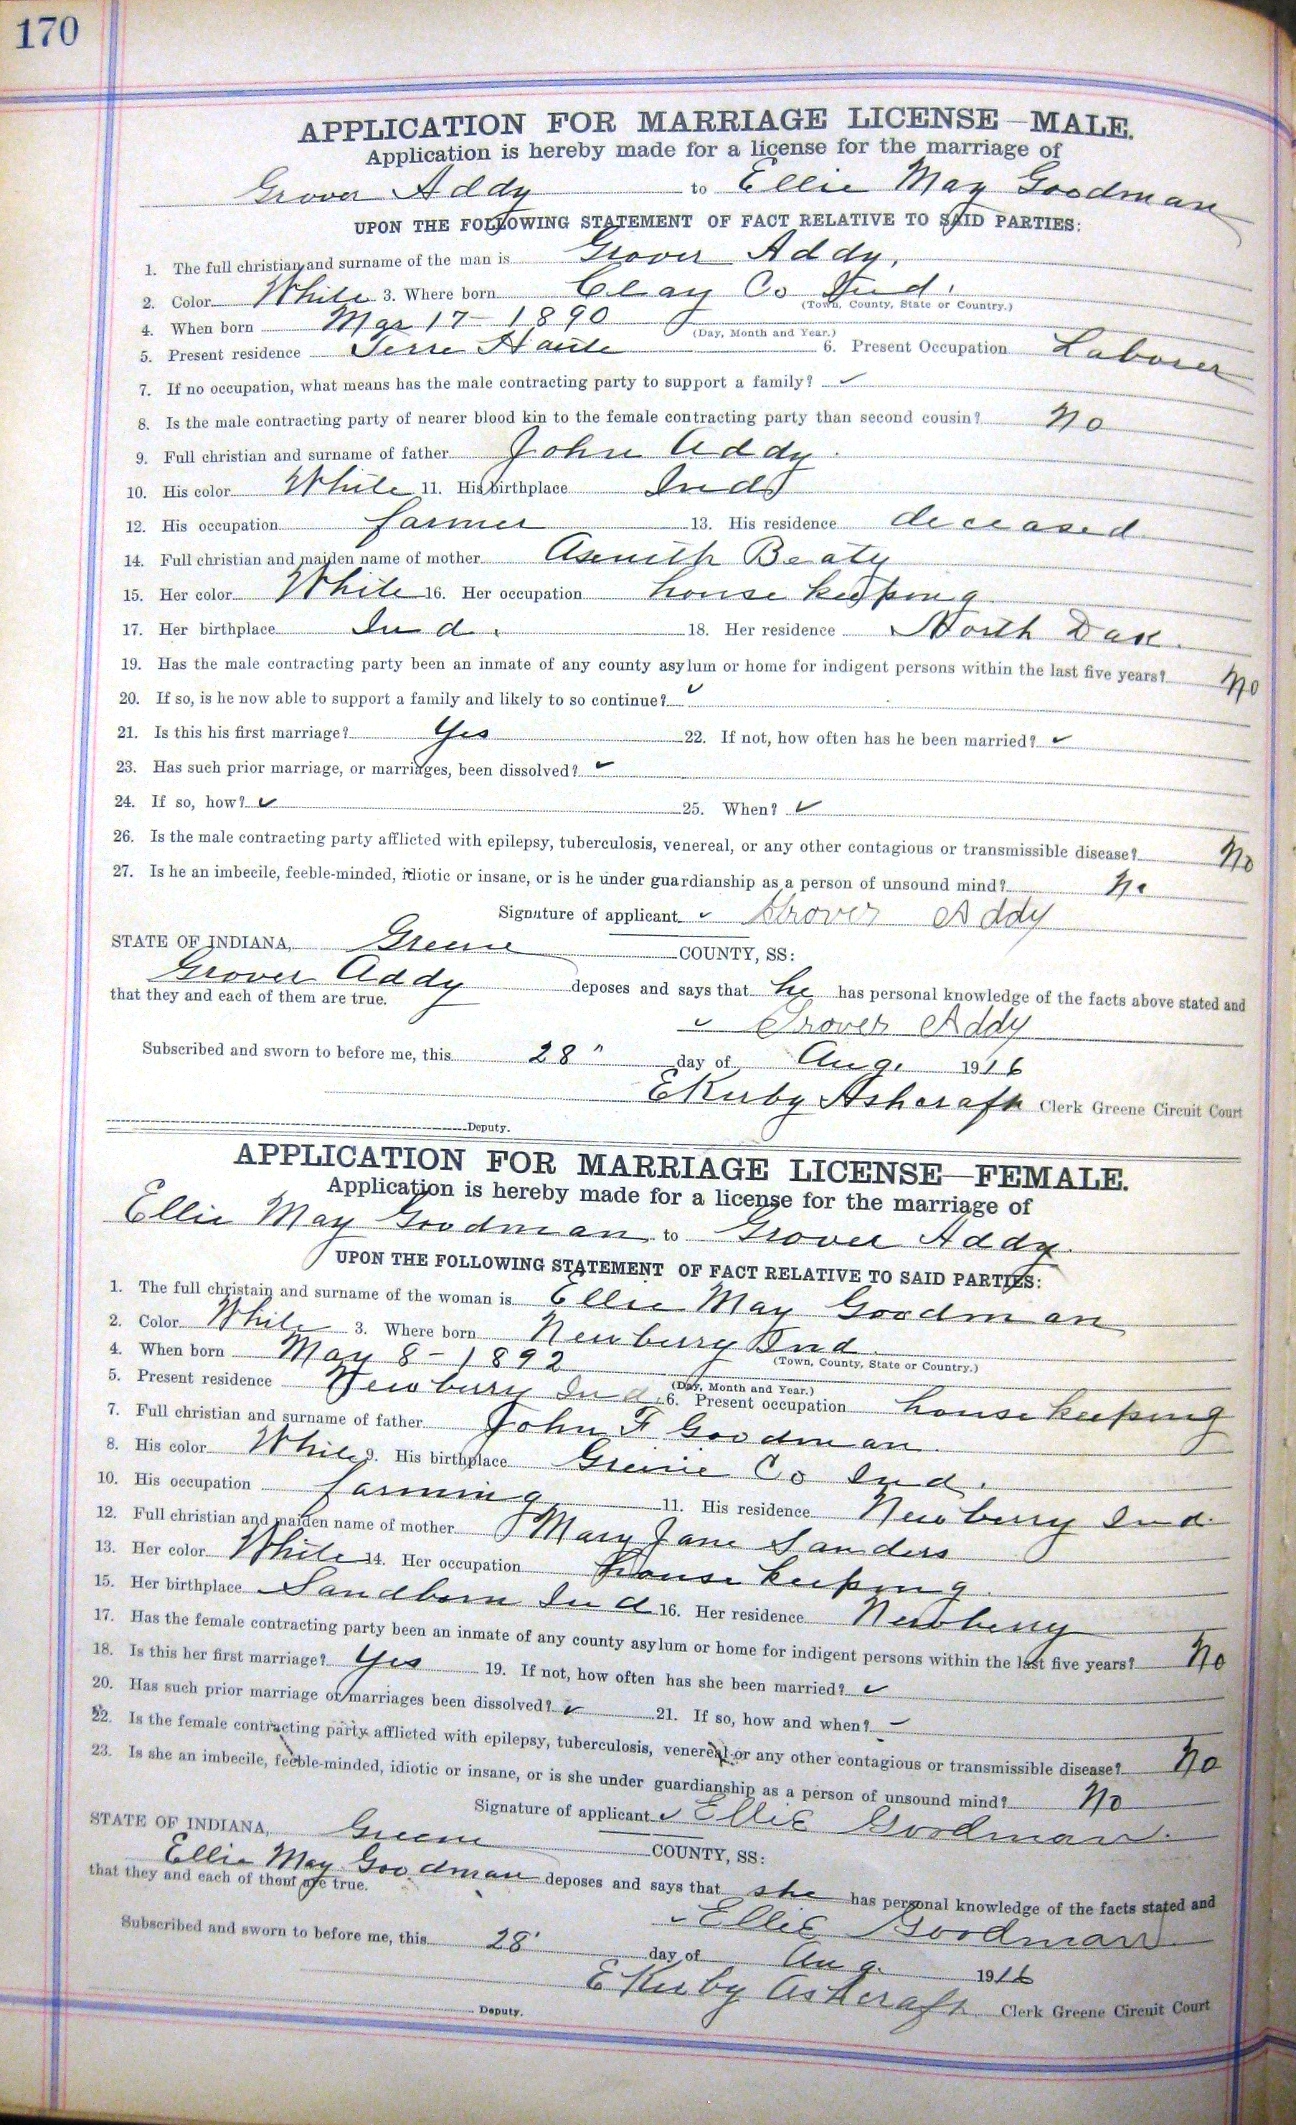 170
APPLICATION FOR MARRIAGE LICENSE—MALE.
Application is hereby made for a license for the marriage of
Grover Addy to Ellie May Goodman
UPON THE FOLLOWING STATEMENT OF FACT RELATIVE TO SAID PARTIES:
1. The full christian and surname of the man is Grover Addy,
2. Color White 3. Where born Clay Co Ind.
(Town, County, State or Country.)
4. When born Mar 17 - 1890
(Day, Month and Year.)
5. Present residence Terre Haute 6. Present Occupation Laborer
7. If no occupation, what means has the male contracting party to support a family? ✓
8. Is the male contracting party of nearer blood kin to the female contracting party than second cousin? No
9. Full christian and surname of father John Addy.
10. His color White 11. His birthplace Ind
12. His occupation farmer 13. His residence deceased
14. Full christian and maiden name of mother Asenith Beaty
15. Her color White 16. Her occupation house keeping
17. Her birthplace Ind. 18. Her residence North Dak.
19. Has the male contracting party been an inmate of any county asylum or home for indigent persons within the last five years? No
20. If so, is he now able to support a family and likely to so continue? ✓
21. Is this his first marriage? Yes 22. If not, how often has he been married? ✓
23. Has such prior marriage, or marriages, been dissolved? ✓
24. If so, how? ✓ 25. When? ✓
26. Is the male contracting party afflicted with epilepsy, tuberculosis, venereal, or any other contagious or transmissible disease? No
27. Is he an imbecile, feeble-minded, idiotic or insane, or is he under guardianship as a person of unsound mind? No
Signature of applicant ✓ Grover Addy
STATE OF INDIANA, Greene COUNTY, SS:
Grover Addy deposes and says that he has personal knowledge of the facts above stated and
that they and each of them are true.
✓ Grover Addy
Subscribed and sworn to before me, this 28" day of Aug. 1916
E Kirby Ashcraft Clerk Greene Circuit Court
Deputy.
APPLICATION FOR MARRIAGE LICENSE—FEMALE.
Application is hereby made for a license for the marriage of
Ellie May Goodman to Grover Addy.
UPON THE FOLLOWING STATEMENT OF FACT RELATIVE TO SAID PARTIES:
1. The full christain and surname of the woman is Ellie May Goodman
2. Color White 3. Where born Newberry Ind.
(Town, County, State or Country.)
4. When born May 8 - 1892
(Day, Month and Year.)
5. Present residence Newberry Ind. 6. Present occupation house keeping
7. Full christian and surname of father John F Goodman.
8. His color White 9. His birthplace Greene Co Ind.
10. His occupation farming 11. His residence Newberry Ind.
12. Full christian and maiden name of mother Mary Jane Sanders
13. Her color White 14. Her occupation house keeping.
15. Her birthplace Sandborn Ind 16. Her residence Newberry
17. Has the female contracting party been an inmate of any county asylum or home for indigent persons within the last five years? No
18. Is this her first marriage? Yes 19. If not, how often has she been married? ✓
20. Has such prior marriage or marriages been dissolved? ✓ 21. If so, how and when? ✓
22. Is the female contracting party afflicted with epilepsy, tuberculosis, venereal or any other contagious or transmissible disease? No
23. Is she an imbecile, feeble-minded, idiotic or insane, or is she under guardianship as a person of unsound mind? No
Signature of applicant ✓ Ellie Goodman.
STATE OF INDIANA, Greene COUNTY, SS:
Ellie May Goodman deposes and says that she has personal knowledge of the facts stated and
that they and each of them are true.
✓ Ellie Goodman
Subscribed and sworn to before me, this 28' day of Aug. 1916
E Kirby Ashcraft Clerk Greene Circuit Court
Deputy.